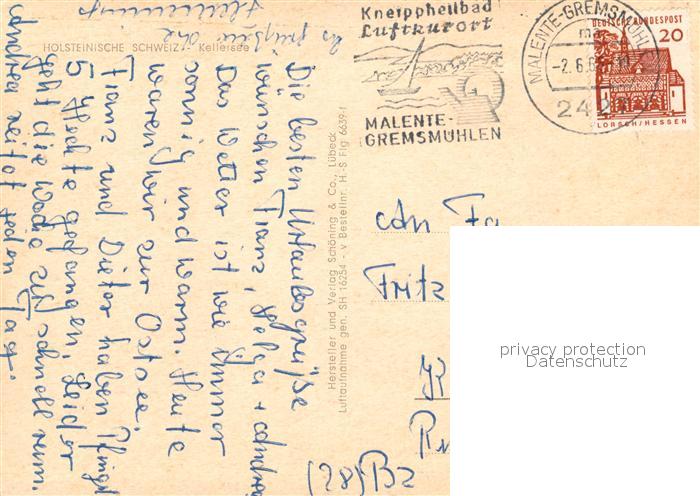 HOLSTEINISCHE SCHWEIZ / Kellersee
Die besten Urlaubsgrüße
wünschen Franz, Helga + Andrea
Das Wetter ist wie immer
sonnig und warm. Heute
waren wir zur Ostsee.
Franz und Dieter haben Pfingst
5 Hechte gefangen. Leider
geht die Woche zu schnell rum.
Andrea reitet jeden Tag.
Es grüßen die
Hersteller und Verlag Schöning & Co., Lübeck
Luftaufnahme gen. SH 16254 - v Bestellnr. H.-S Flg 6639/1
Kneippheilbad
Luftkurort
MALENTE-
GREMSMÜHLEN
MALENTE-GREMSMÜHL
-2.6.6
242
DEUTSCHE BUNDESPOST
20
LORSCH/HESSEN
An Fa
Fritz
(28) B2
privacy protection
Datenschutz